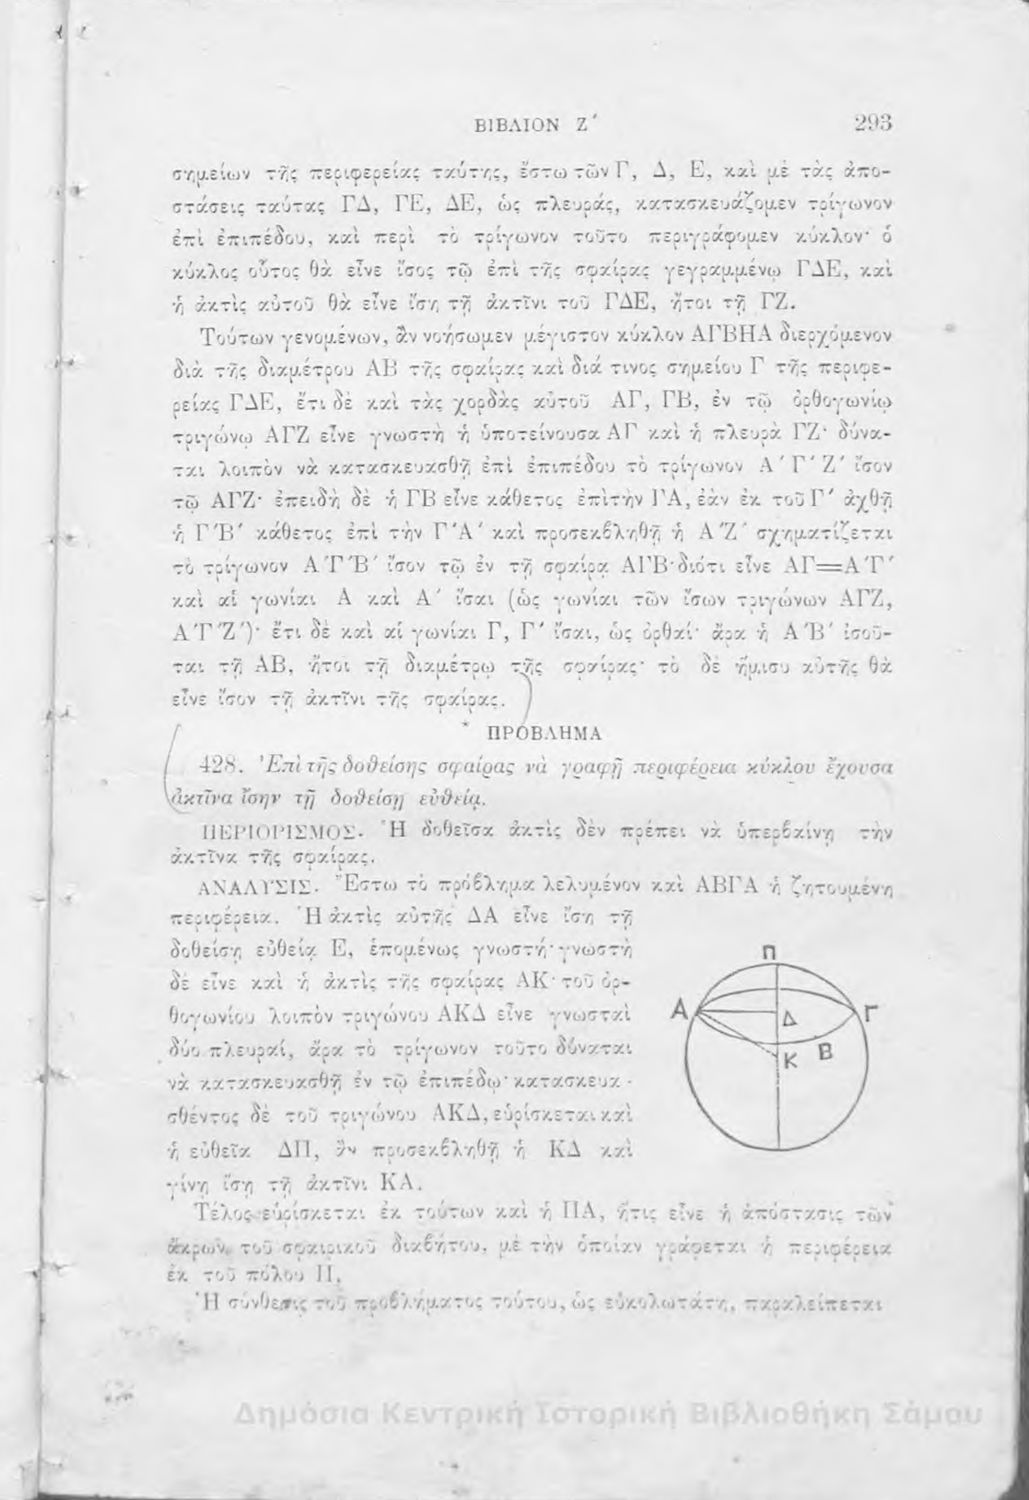 ΒΙΒΛΙΟΝ Ζ΄ 293
σημείων τῆς περιφερείας ταύτης, ἔστω τῶν Γ, Δ, Ε, καὶ μὲ τὰς ἀπο-
στάσεις ταύτας ΓΔ, ΓΕ, ΔΕ, ὡς πλευράς, κατασκευάζομεν τρίγωνον
ἐπὶ ἐπιπέδου, καὶ περὶ τὸ τρίγωνον τοῦτο περιγράφομεν κύκλον· ὁ
κύκλος οὗτος θὰ εἶνε ἴσος τῷ ἐπὶ τῆς σφαίρας γεγραμμένῳ ΓΔΕ, καὶ
ἡ ἀκτὶς αὐτοῦ θὰ εἶνε ἴση τῇ ἀκτῖνι τοῦ ΓΔΕ, ἤτοι τῇ ΓΖ.
Τούτων γενομένων, ἂν νοήσωμεν μέγιστον κύκλον ΑΓΒΗΑ διερχόμενον
διὰ τῆς διαμέτρου ΑΒ τῆς σφαίρας καὶ διά τινος σημείου Γ τῆς περιφε-
ρείας ΓΔΕ, ἔτι δὲ καὶ τὰς χορδὰς αὐτοῦ ΑΓ, ΓΒ, ἐν τῷ ὀρθογωνίῳ
τριγώνῳ ΑΓΖ εἶνε γνωστὴ ἡ ὑποτείνουσα ΑΓ καὶ ἡ πλευρὰ ΓΖ· δύνα-
ται λοιπὸν νὰ κατασκευασθῇ ἐπὶ ἐπιπέδου τὸ τρίγωνον Α΄Γ΄Ζ΄ ἴσον
τῷ ΑΓΖ· ἐπειδὴ δὲ ἡ ΓΒ εἶνε κάθετος ἐπὶ τὴν ΓΑ, ἐὰν ἐκ τοῦ Γ΄ ἀχθῇ
ἡ Γ΄Β΄ κάθετος ἐπὶ τὴν Γ΄Α΄ καὶ προσεκβληθῇ ἡ Α΄Ζ΄ σχηματίζεται
τὸ τρίγωνον Α΄Γ΄Β΄ ἴσον τῷ ἐν τῇ σφαίρᾳ ΑΓΒ· διότι εἶνε ΑΓ=Α΄Γ΄
καὶ αἱ γωνίαι Α καὶ Α΄ ἴσαι (ὡς γωνίαι τῶν ἴσων τριγώνων ΑΓΖ,
Α΄Γ΄Ζ΄)· ἔτι δὲ καὶ αἱ γωνίαι Γ, Γ΄ ἴσαι, ὡς ὀρθαί· ἄρα ἡ Α΄Β΄ ἰσοῦ-
ται τῇ ΑΒ, ἤτοι τῇ διαμέτρῳ τῆς σφαίρας· τὸ δὲ ἥμισυ αὐτῆς θὰ
εἶνε ἴσον τῇ ἀκτῖνι τῆς σφαίρας.
* ΠΡΟΒΛΗΜΑ
428. Ἐπὶ τῆς δοθείσης σφαίρας νὰ γραφῇ περιφέρεια κύκλου ἔχουσα
ἀκτῖνα ἴσην τῇ δοθείσῃ εὐθείᾳ.
ΠΕΡΙΟΡΙΣΜΟΣ. Ἡ δοθεῖσα ἀκτὶς δὲν πρέπει νὰ ὑπερβαίνῃ τὴν
ἀκτῖνα τῆς σφαίρας.
ΑΝΑΛΥΣΙΣ. Ἔστω τὸ πρόβλημα λελυμένον καὶ ΑΒΓΑ ἡ ζητουμένη
περιφέρεια. Ἡ ἀκτὶς αὐτῆς ΔΑ εἶνε ἴση τῇ
δοθείσῃ εὐθείᾳ Ε, ἑπομένως γνωστή· γνωστὴ
δὲ εἶνε καὶ ἡ ἀκτὶς τῆς σφαίρας ΑΚ· τοῦ ὀρ-
θογωνίου λοιπὸν τριγώνου ΑΚΔ εἶνε γνωσταὶ
δύο πλευραί, ἄρα τὸ τρίγωνον τοῦτο δύναται
νὰ κατασκευασθῇ ἐν τῷ ἐπιπέδῳ· κατασκευα-
σθέντος δὲ τοῦ τριγώνου ΑΚΔ, εὑρίσκεται καὶ
ἡ εὐθεῖα ΔΠ, ἂν προσεκβληθῇ ἡ ΚΔ καὶ
γίνῃ ἴση τῇ ἀκτῖνι ΚΑ.
Π
Α
Γ
Δ
Κ
Β
Τέλος εὑρίσκεται ἐκ τούτων καὶ ἡ ΠΑ, ἥτις εἶνε ἡ ἀπόστασις τῶν
ἄκρων τοῦ σφαιρικοῦ διαβήτου, μὲ τὴν ὁποίαν γράφεται ἡ περιφέρεια
ἐκ τοῦ πόλου Π.
Ἡ σύνθεσις τοῦ προβλήματος τούτου, ὡς εὐκολωτάτη, παραλείπεται
Δημόσια Κεντρική Ιστορική Βιβλιοθήκη Σάμου